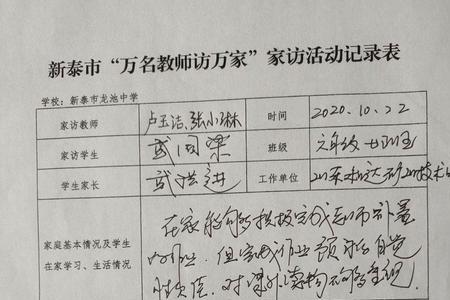 新泰市“万名教师访万家”家访活动记录表
学校：新泰市龙池中学
家访教师 卢玉洁、张小琳 时间 2020.10.22
家访学生 武国梁 班级 六年级七班
学生家长 武洪进 工作单位
家庭基本情况及学生
在家学习、生活情况
在家能够积极完成老师布置
的作业，但完成作业预习自觉
性较差，对课外读物不够重视。